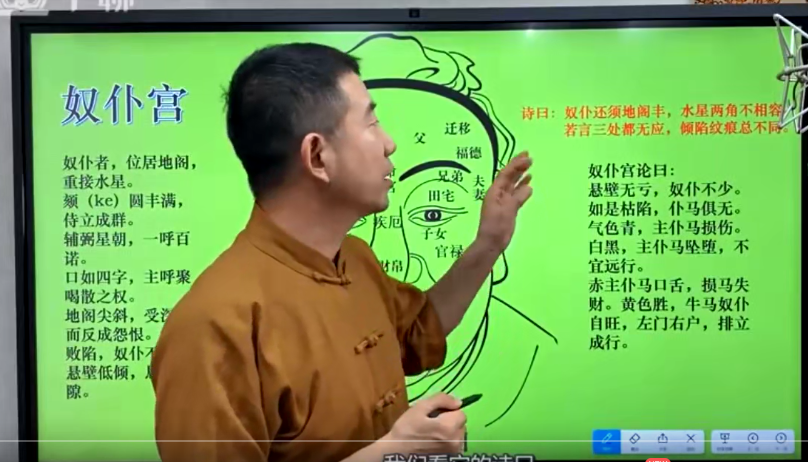 奴仆宫
奴仆者，位居地阁，
重接水星。
颏（ke）圆丰满，
侍立成群。
辅弼星朝，一呼百
诺。
口如四字，主呼聚
喝散之权。
地阁尖斜，受
而反成怨恨。
败陷，奴仆不
悬壁低倾，
隙。
父
迁移
福德
兄弟
夫妻
田宅
疾厄
子女
官禄
财帛
诗曰：奴仆还须地阁丰，水星两角不相容。
若言三处都无应，倾陷纹痕总不同。
奴仆宫论曰：
悬壁无亏，奴仆不少。
如是枯陷，仆马俱无。
气色青，主仆马损伤。
白黑，主仆马坠堕，不
宜远行。
赤主仆马口舌，损马失
财。黄色胜，牛马奴仆
自旺，左门右户，排立
成行。